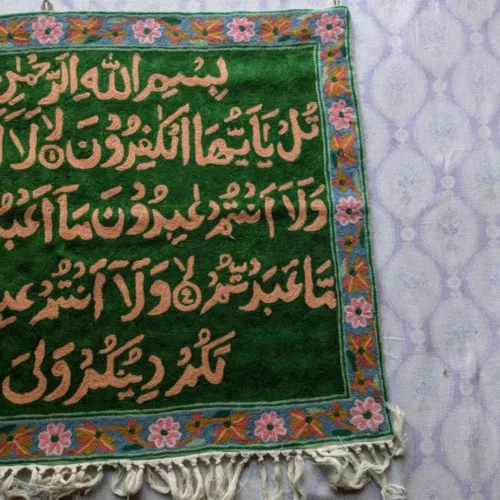 بِسْمِ اللهِ الرَّحْمٰنِ
قُلْ يَا أَيُّهَا الْكٰفِرُوْنَ ۙ۝١ لَا
وَلَآ اَنْتُمْ عٰبِدُوْنَ مَآ اَعْبُ
مَّا عَبَدْتُّمْ ۙ۝٤ وَلَآ اَنْتُمْ عٰبِ
لَكُمْ دِيْنُكُمْ وَلِيَ